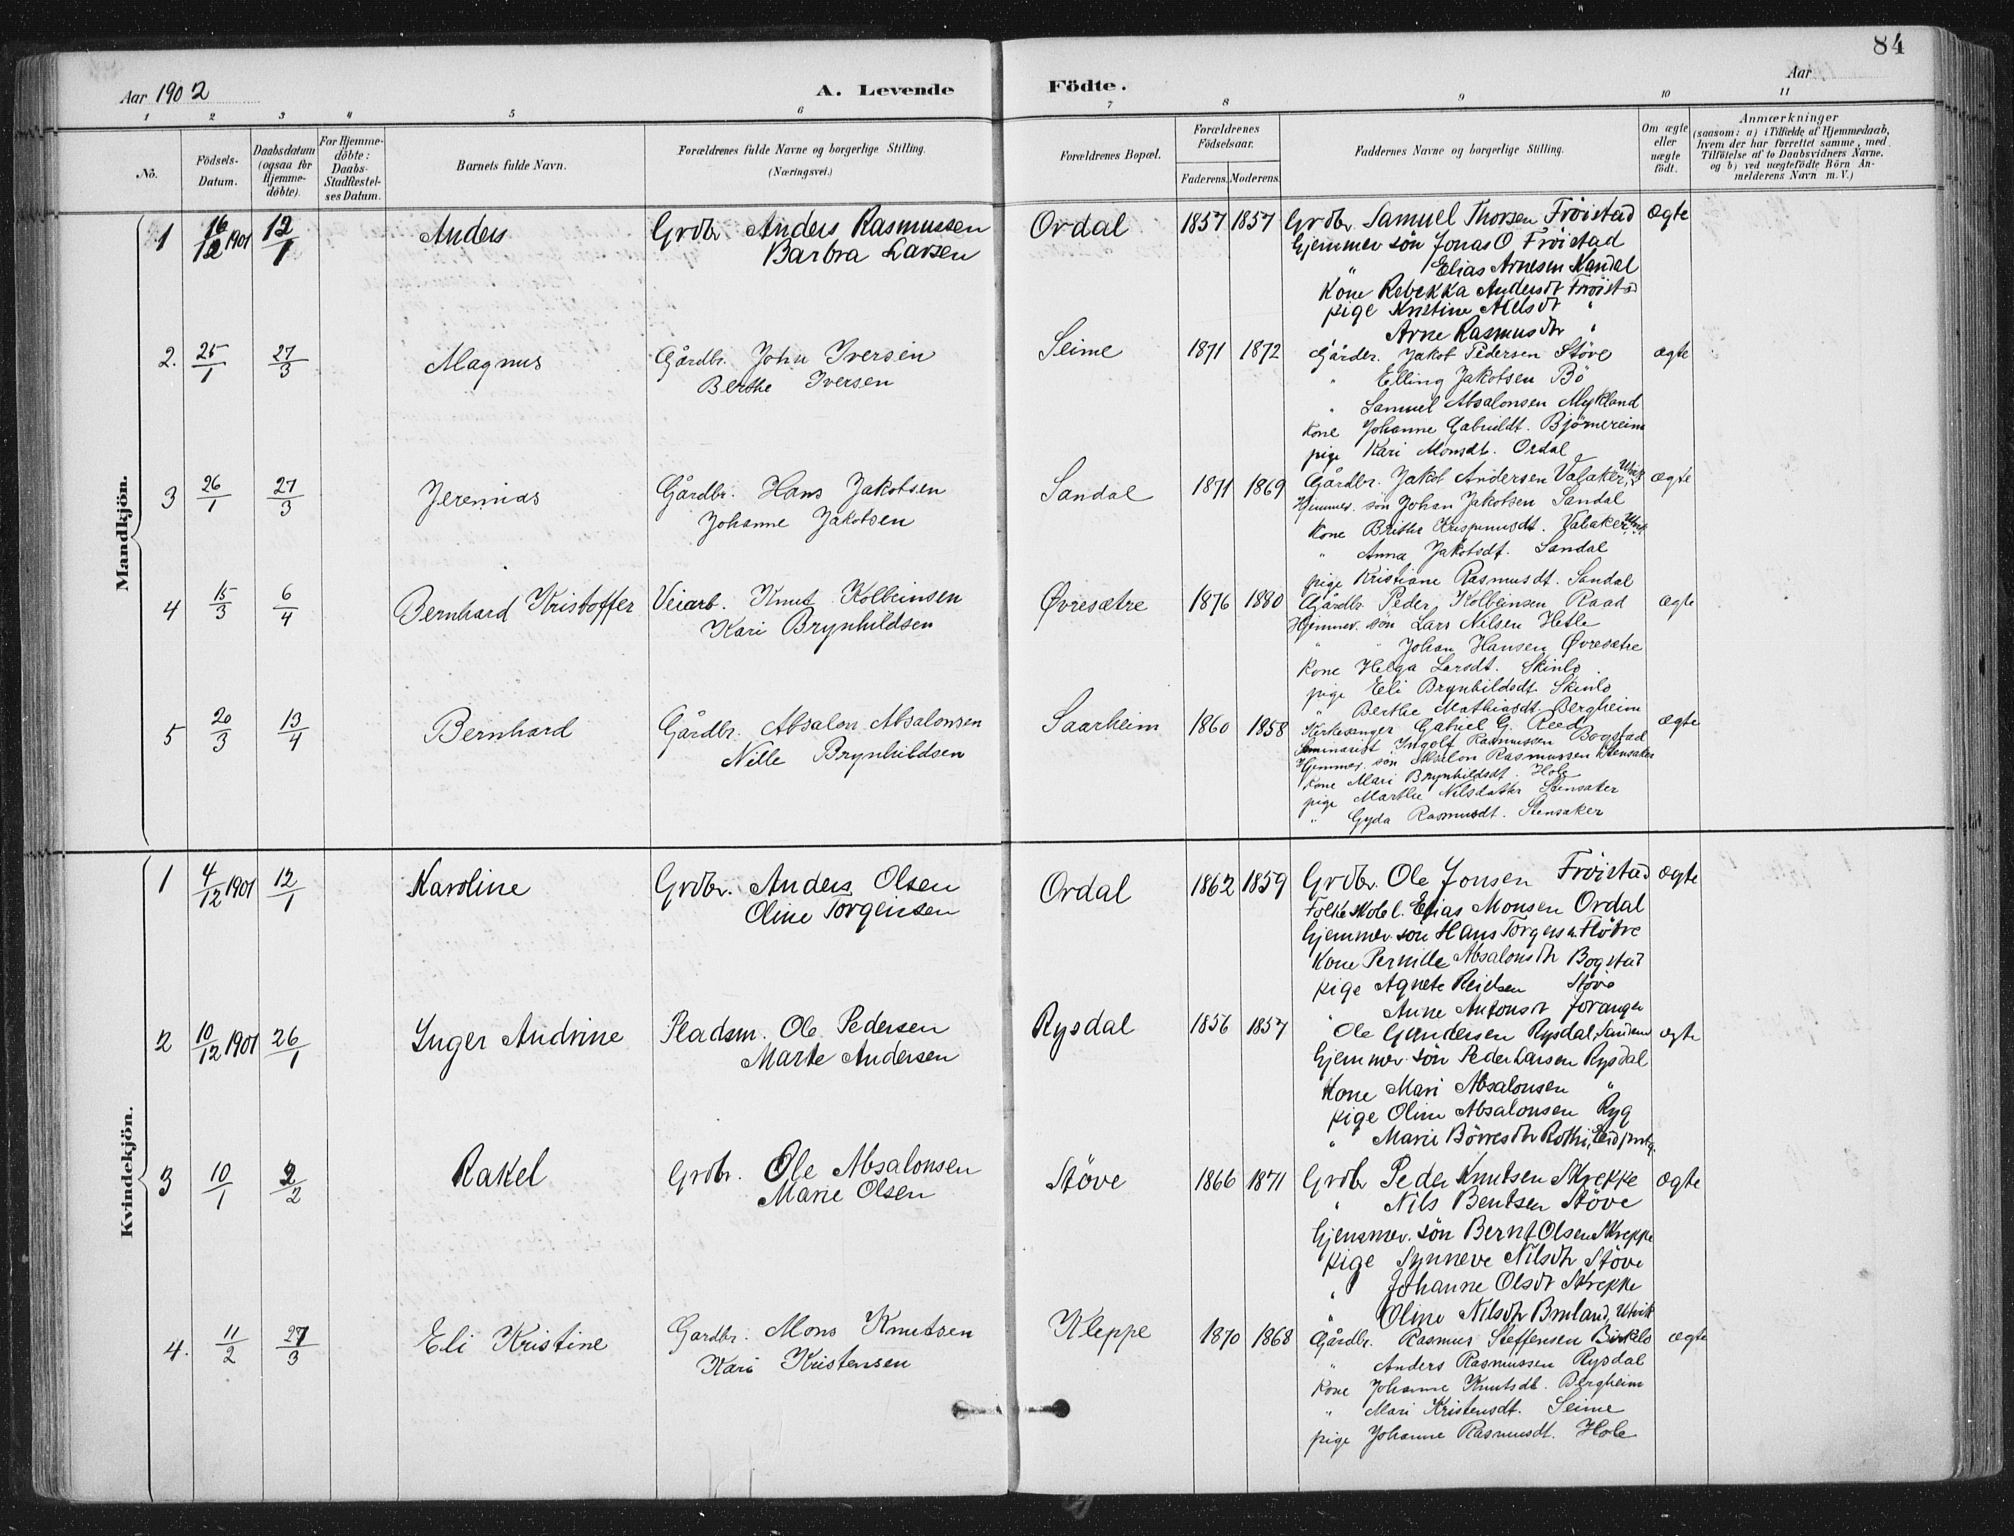 84
Aar 1902
A. Levende Födte.
Aar
1 2 3 4 5 6 7 8 9 10 11
No.
Födsels-Datum.
Daabsdatum (ogsaa for Hjemme-döbte).
For Hjemme-döbte: Daabs-Stadfæstelses Datum.
Barnets fulde Navn.
Forældrenes fulde Navne og borgerlige Stilling. (Næringsvei.)
Forældrenes Bopæl.
Forældrenes Födselsaar.
Faderens. Moderens.
Faddernes Navne og borgerlige Stilling.
Om ægte eller uægte födt.
Anmærkninger (saasom: a) i Tilfælde af Hjemmedaab, hvem der har forrettet samme, med Tilföielse af to Daabsvidners Navne. og b) ved uægtefödte Börn Anmelderens Navn m. V.)
Mandkjön.
1 16/12 1901 12/1 Anders Grdbr Anders Rasmussen Ordal 1857 1857 Grdbr Samuel Thorsen Fröistad ægte
Barbra Larsen
Hjemmev. sön Jonas O. Fröistad
" Elias Arnesen Kandal
Kone Rebekka Andersdt Fröistad
pige Kristine Nilsdt "
Arne Rasmusdtr "
2. 25/1 27/3 Magnus Gårdbr. John Iversen Seime 1871 1872 Gårdbr. Jakob Pedersen Støve ægte
Berthe Iversen
" Elling Jakobsen Bö
" Samuel Absalonsen Mykland
Kone Johanne Gabrieldt. Bjørnereim
pige Kari Monsdt. Ordal
3 26/1 27/3 Jeremias Gårdbr. Hans Jakobsen Sandal 1871 1869 Gårdbr. Jakob Andersen Valaker, Utvik ægte
Johanne Jakobsen
Hjemmev. søn Johan Jakobsen Sandal
Kone Brithe Rasmusdt. Valaker, Utvik
" Anna Jakobsdt. Sandal
pige Kristiane Rasmusdt. Sandal
4 15/3 6/4 Bernhard Kristoffer Veiarb. Knut Kolbeinsen Øvresætre 1876 1880 Gårdbr. Peder Kolbeinsen Raad ægte
Kari Brynhildsen
Hjemmev. søn Lars Nilsen Hetle
" " Johan Hansen Øvresætre
Kone Helga Larsdt. Skinlo
pige Eli Brynhildsdt Skinlo
" Berthe Mathiasdt. Bergheim
5 20/3 13/4 Bernhard Gårdbr. Absalon Absalonsen Saarheim 1860 1858 Kirkesanger Gabriel G. Reed ægte
Nille Brynhildsen
Seminarist Ingolf Rasmussen Bogstad
Hjemmev. søn Absalon Rasmussen Stensaker
Kone Mari Brynhildsdt. Hole
pige Marthe Nilsdatter Stensaker
" Gyda Rasmusdt. Stensaker
Kvindekjön.
1 4/12 1901 12/1 Karoline Grdbr. Anders Olsen Ordal 1862 1859 Grdbr. Ole Jonsen Fröistad ægte
Oline Torgersen
Folkeskolel. Elias Monsen Ordal
Hjemmev. sön Hans Torgersen Fløtre
Kone Pernille Absalonsdtr Bogstad
pige Agnete Reiersen Støve
" Anne Antonsdt Joranger
2 10/12 1901 26/1 Inger Andrine Pladsm. Ole Pedersen Rysdal 1856 1857 Ole Gundersen Rysdal, Sandene ægte
Marte Andersen
Hjemmev. sön Peder Larsen Rysdal
Kone Mari Absalonsen "
pige Oline Absalonsen Ryg
" Marie Børresdtr Rothi, Eidfjord
3 10/1 2/2 Rakel Grdbr. Ole Absalonsen Støve 1866 1871 Grdbr Peder Knutsen Skrekke ægte
Marie Olsen
" Nils Bentsen Støve
Hjemmev. sön Bernt Olsen Skreppe
pige Synneve Nilsdtr Støve
" Johanne Olsdt Skrepke
" Oline Nilsdtr Bruland, Utvik
4. 11/2 27/3 Eli Kristine Gardbr. Mons Knutsen Kleppe 1870 1868 Gårdbr. Rasmus Steffensen Birkelo ægte
Kari Kristensen
" Anders Rasmussen Rysdal
Kone Johanne Knutsdt. Bergheim
" Mari Kristensdt. Seime
pige Johanne Rasmusdt. Hole